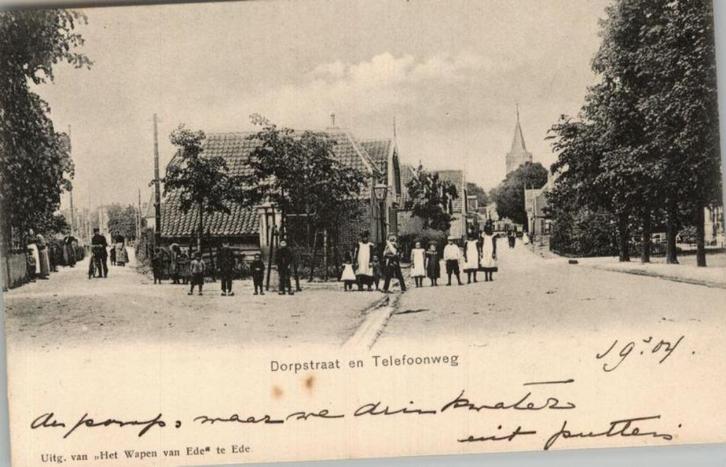 Dorpstraat en Telefoonweg
19 5/ 04.
de pomp, maar we drinkwater
uit putten
Uitg. van „Het Wapen van Ede" te Ede